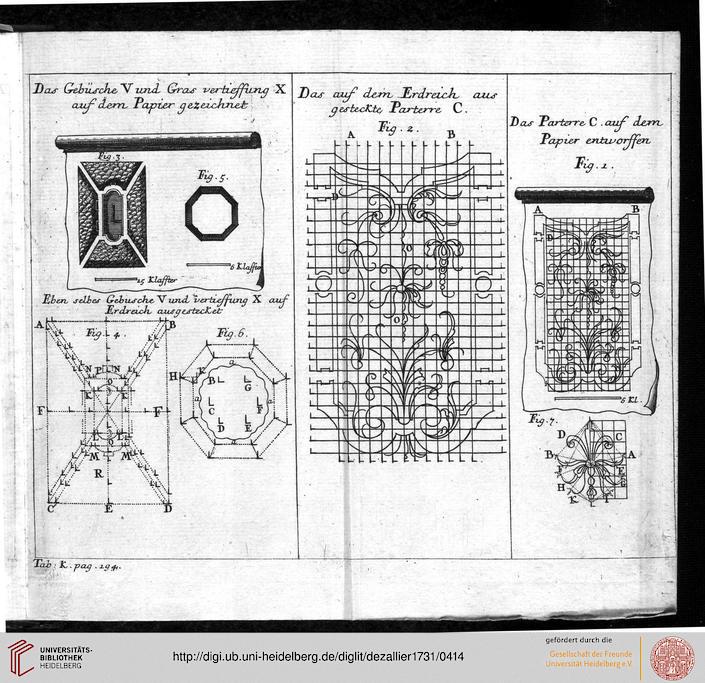 Das Gebüsche V und Gras vertieffung X
auf dem Papier gezeichnet
Fig. 3.
L
Fig. 5.
15 Klaffter
6 Klaffter
Eben selbes Gebüsche V und Vertieffung X auf
Erdreich ausgestecket
A
B
Fig. 4.
N P N
O
K
K
F
F
L
L
O
M
M
R
C
E
D
Fig. 6.
a
H
K
B
G
a
a
C
F
D
E
Das auf dem Erdreich aus
gesteckte Parterre C.
Fig. 2.
A
B
D
O
O
Das Parterre C. auf dem
Papier entworffen
Fig. 1.
A
B
D
6 Kl.
Fig. 7.
D
C
B
A
F
E
H
G
K
L
I
Tab: K. pag. 194.
UNIVERSITÄTS-
BIBLIOTHEK
HEIDELBERG
http://digi.ub.uni-heidelberg.de/diglit/dezallier1731/0414
gefördert durch die
Gesellschaft der Freunde
Universität Heidelberg e.V.